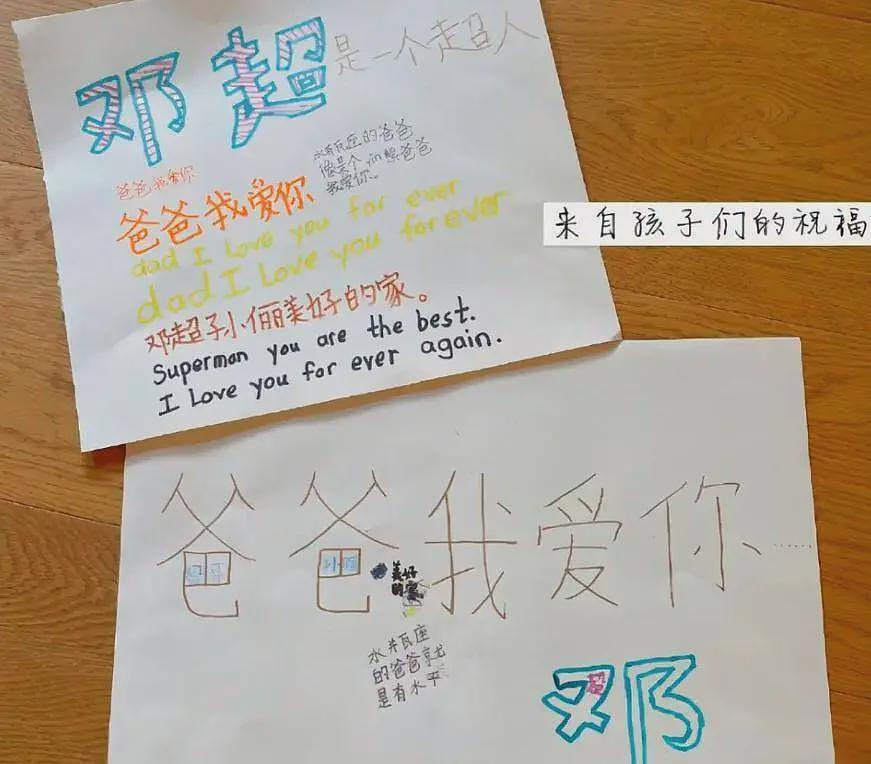 邓超是一个超人
爸爸我爱你
水井瓦座的爸爸
像是个
爸爸
我爱你。
爸爸我爱你
dad I Love you for ever
dad I Love you for ever
邓超孙俪美好的家。
Superman you are the best.
I Love you for ever again.
来自孩子们的祝福
爸爸我爱你……
美好
的家
水井瓦座
的爸爸就
是有水平
邓
超